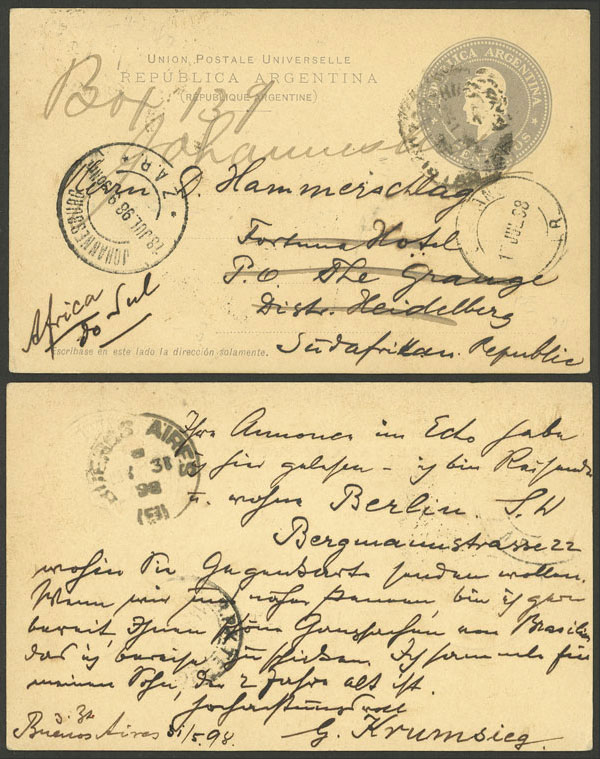 UNION POSTALE UNIVERSELLE
REPÚBLICA ARGENTINA
(RÉPUBLIQUE ARGENTINE)
REPUBLICA ARGENTINA
Box 139
Johannesb
JOHANNESBURG
Z.A.R.
18 JUL 98
Herrn D. Hammerschlag
Fortuna Hotel
P.O. The Grange
Distr. Heidelberg
Südafrikan. Republic
Africa
do Sul
JUL 98
Escríbase en este lado la dirección solamente.
BUENOS AIRES
31
98
Ihre Annonce im Echo habe
ich hier gelesen – ich bin Reisender
u. wohne Berlin S.W
Bergmannstrasse 22
wohin Sie Gegenkarte senden wollen.
Wenn wir uns näher kennen, bin ich gern
bereit, Ihnen schöne Ganzsachen von Brasilien,
das ich bereise zu schicken. Ich sammle für
meinen Sohn, der 2 Jahre alt ist.
Hochachtungsvoll
G. Krumsieg.
z. Zt.
Buenos Aires 31/5.98.